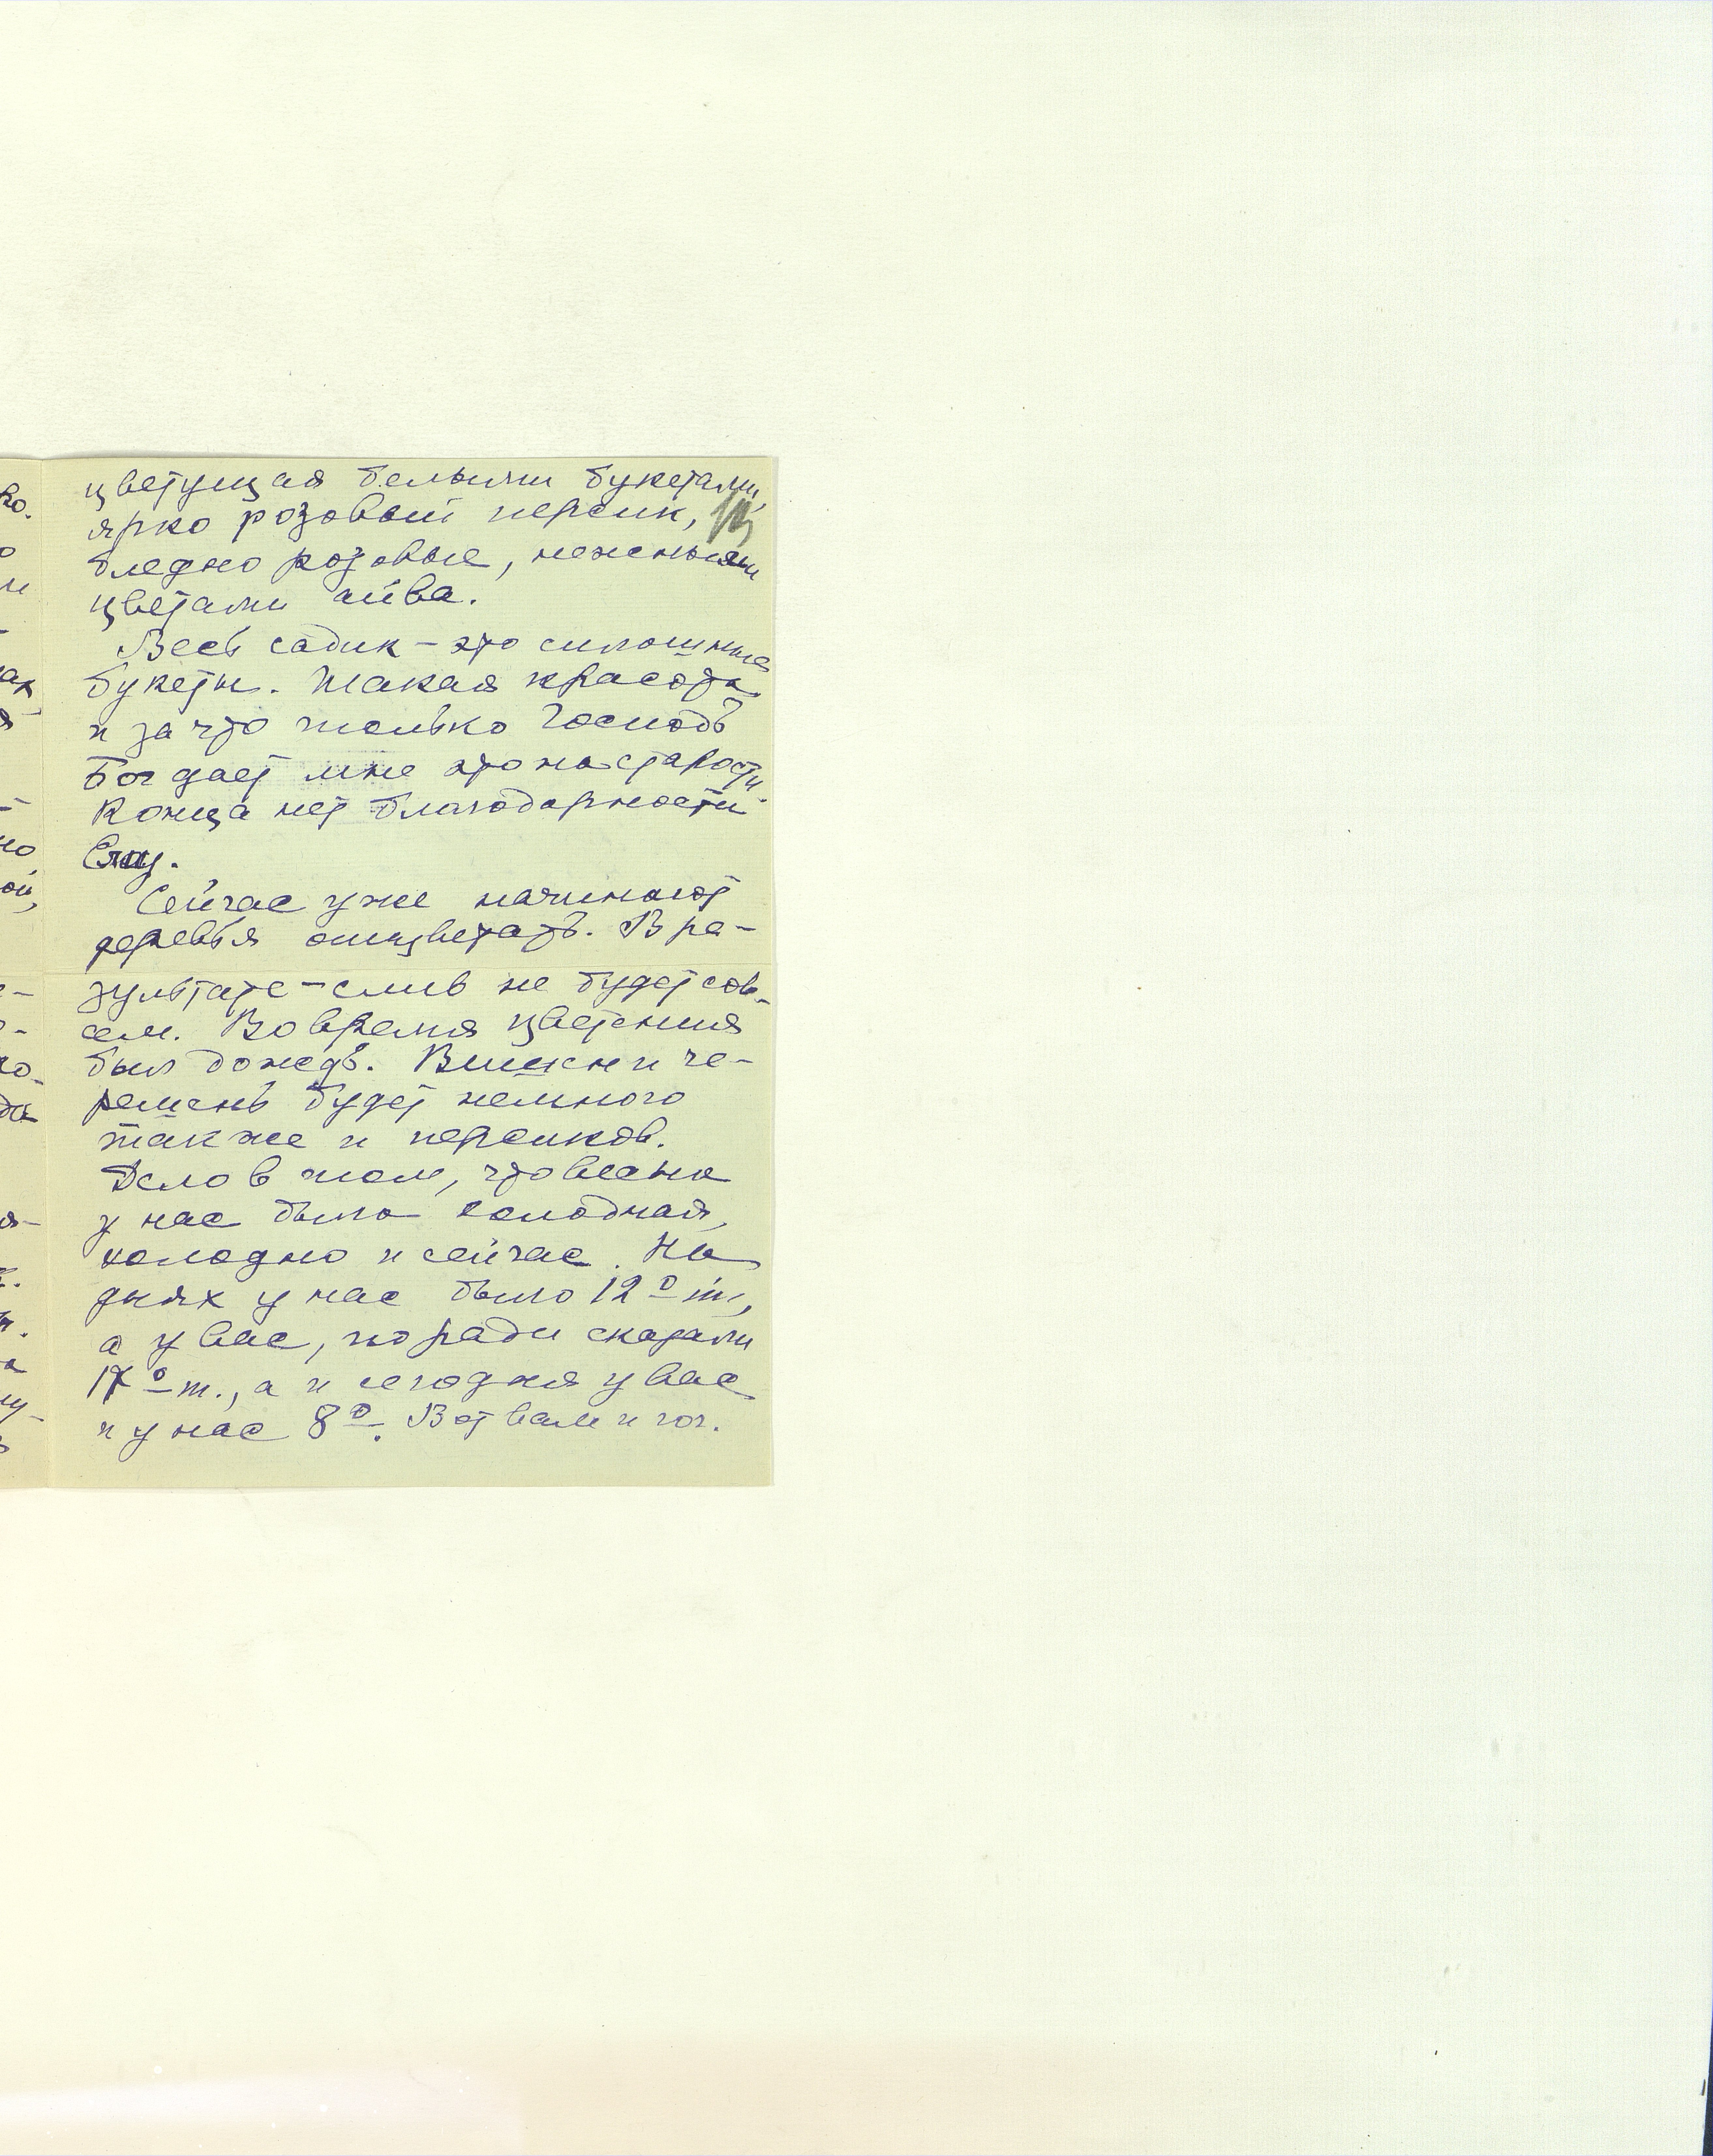 цветущая белыми букетами,
ярко розовый персик,
бледно розовые, нежными
цветами айва.
Весь садик – это сплошные
букеты. Такая красота
и за что только Господь
Бог дает мне это на старости.
Конца нет благодарности
Ему.
Сейчас уже начинают
деревья отцветать. В ре-
зультате – слив не будет сов-
сем. Во время цветения
был дождь. Вишен и че-
решень будет немного
также и персиков.
Дело в том, что весна
у нас была холодная,
холодно и сейчас. На
днях у нас было 12° т.,
а у вас, по радио сказали
17° т., а и сегодня у вас
и у нас 8°. Вот вам и юг.